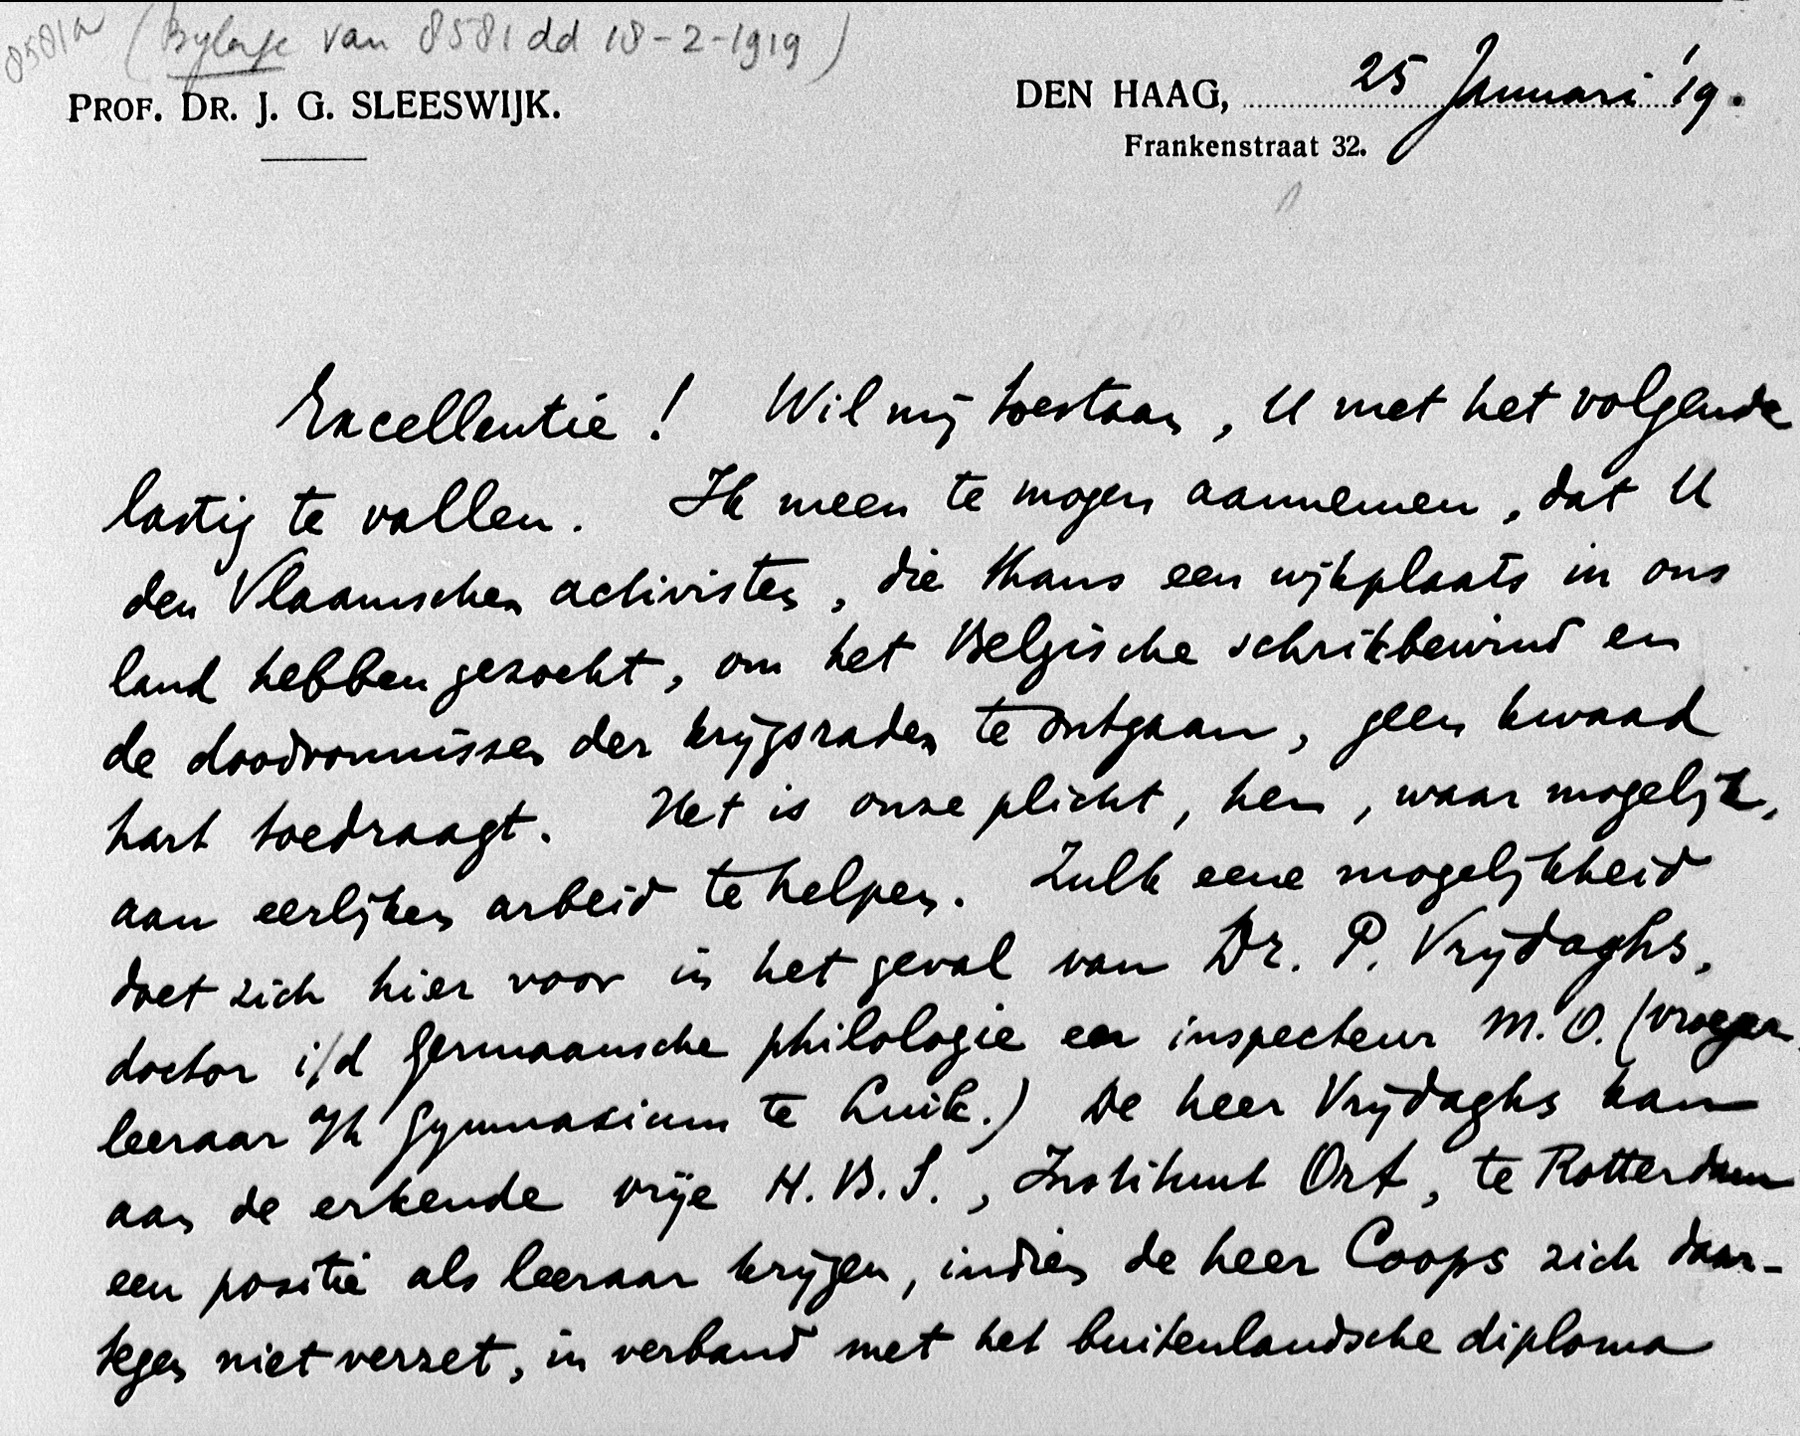 8581a (Bylage van 8581 dd 18-2-1919)
PROF. DR. J. G. SLEESWIJK.
DEN HAAG, 25 Januari '19.
Frankenstraat 32.
Excellentie! Wil mij toestaan, U met het volgende
lastig te vallen. Ik meen te mogen aannemen, dat U
den Vlaamschen activisten, die thans een wijkplaats in ons
land hebben gezocht, om het Belgische schrikbewind en
de doodvonnissen der krijgsraden te ontgaan, geen kwaad
hart toedraagt. Het is onze plicht, hen, waar mogelijk,
aan eerlijken arbeid te helpen. Zulk eene mogelijkheid
doet zich hier voor in het geval van Dr. P. Vrijdaghs,
doctor i/d Germaansche philologie en inspecteur M.O. (vroeger
leeraar a/h Gymnasium te Luik.) De heer Vrijdaghs kan
aan de erkende vrije H.B.S., Instituut Ort, te Rotterdam
een positie als leeraar krijgen, indien de heer Coops zich daar-
tegen niet verzet, in verband met het buitenlandsche diploma